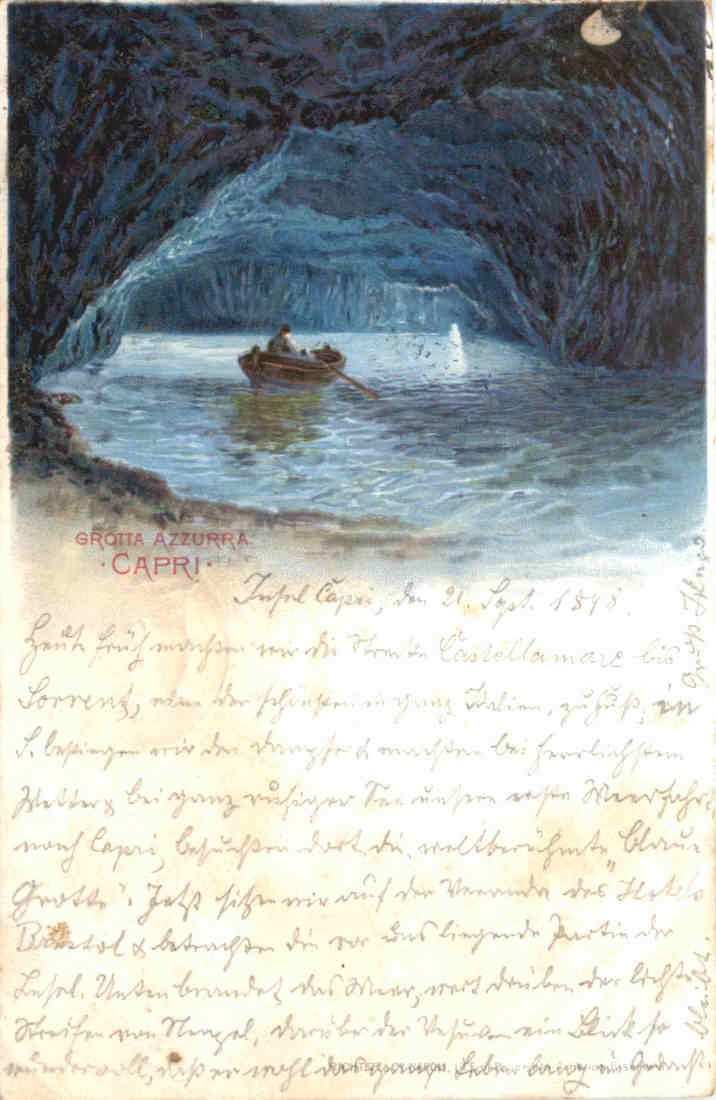 GROTTA AZZURRA
·CAPRI·
Insel Capri, den 21. Sept. 1898.
Heute früh machten wir die Strecke Castellamare bis
Sorrent, eine der schönsten in ganz Italien, zu Fuß, in
S. bestiegen wir den Dampfer & machten bei herrlichstem
Wetter & bei ganz ruhiger See unsere erste Meerfahrt
nach Capri, besuchten dort die weltberühmte "blaue
Grotte". Jetzt sitzen wir auf der Veranda des Hotels
Bristol & betrachten die vor uns liegende Partie der
Insel. Unten brandet das Meer, weit drüben der lichte
Streifen von Neapel, darüber der Vesuv ein Blick so
wundervoll, daß er wohl das ganze Leben lang im Gedächt.
bleibt.
Gruß